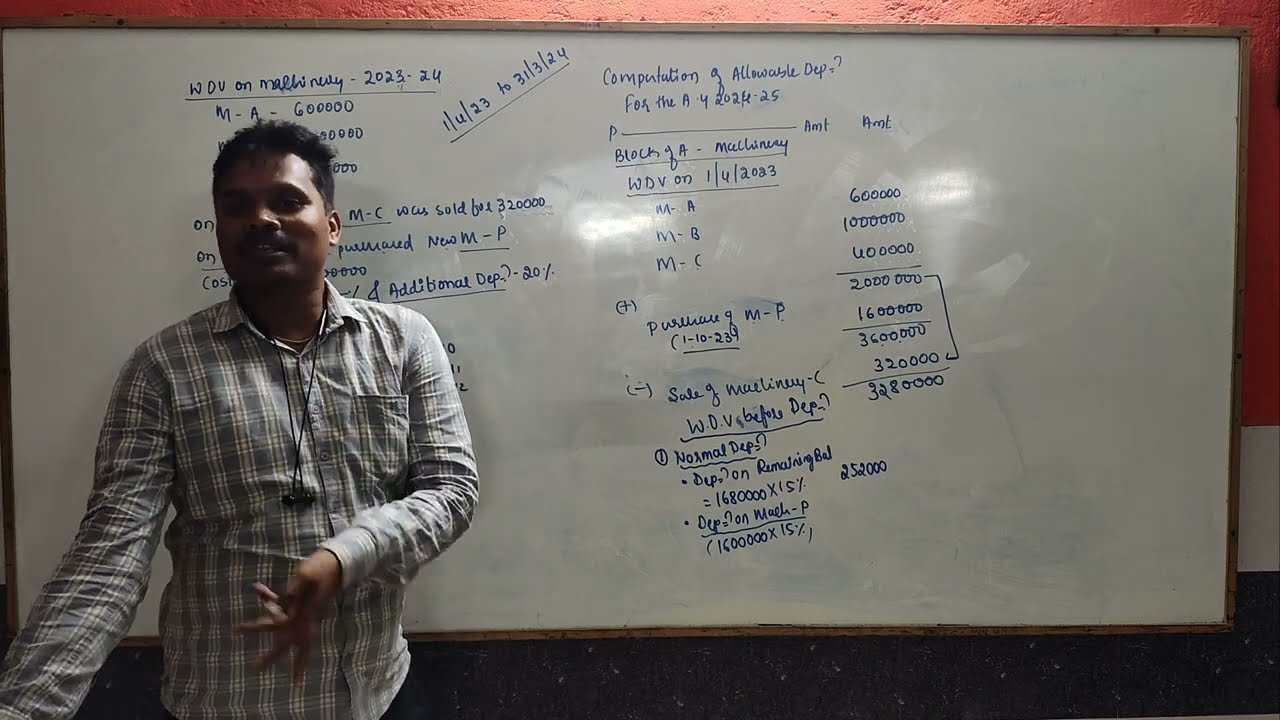 WDV on machinery - 2023-24
M-A - 600000
00000
0000
On M-C was sold for 320000
On purchased New M-P
Cost 00000
% & Additional Dep:? - 20%
0
11
12
1/4/23 to 31/3/24
Computation of Allowable Dep:?
For the A.Y 2024-25
P Amt Amt
Block of A - Machinery
WDV on 1/4/2023
M-A 600000
M-B 1000000
M-C 400000
2000000
(+)
Purchase of M-P 1600000
(1-10-23) 3600000
(-) Sale of Machinery-C 320000
W.D.V. before Dep:? 3280000
① Normal Dep:?
• Dep:? on Remaining Bal 252000
= 1680000 X 15%
• Dep:? on Mach-P
(1600000 X 15%)